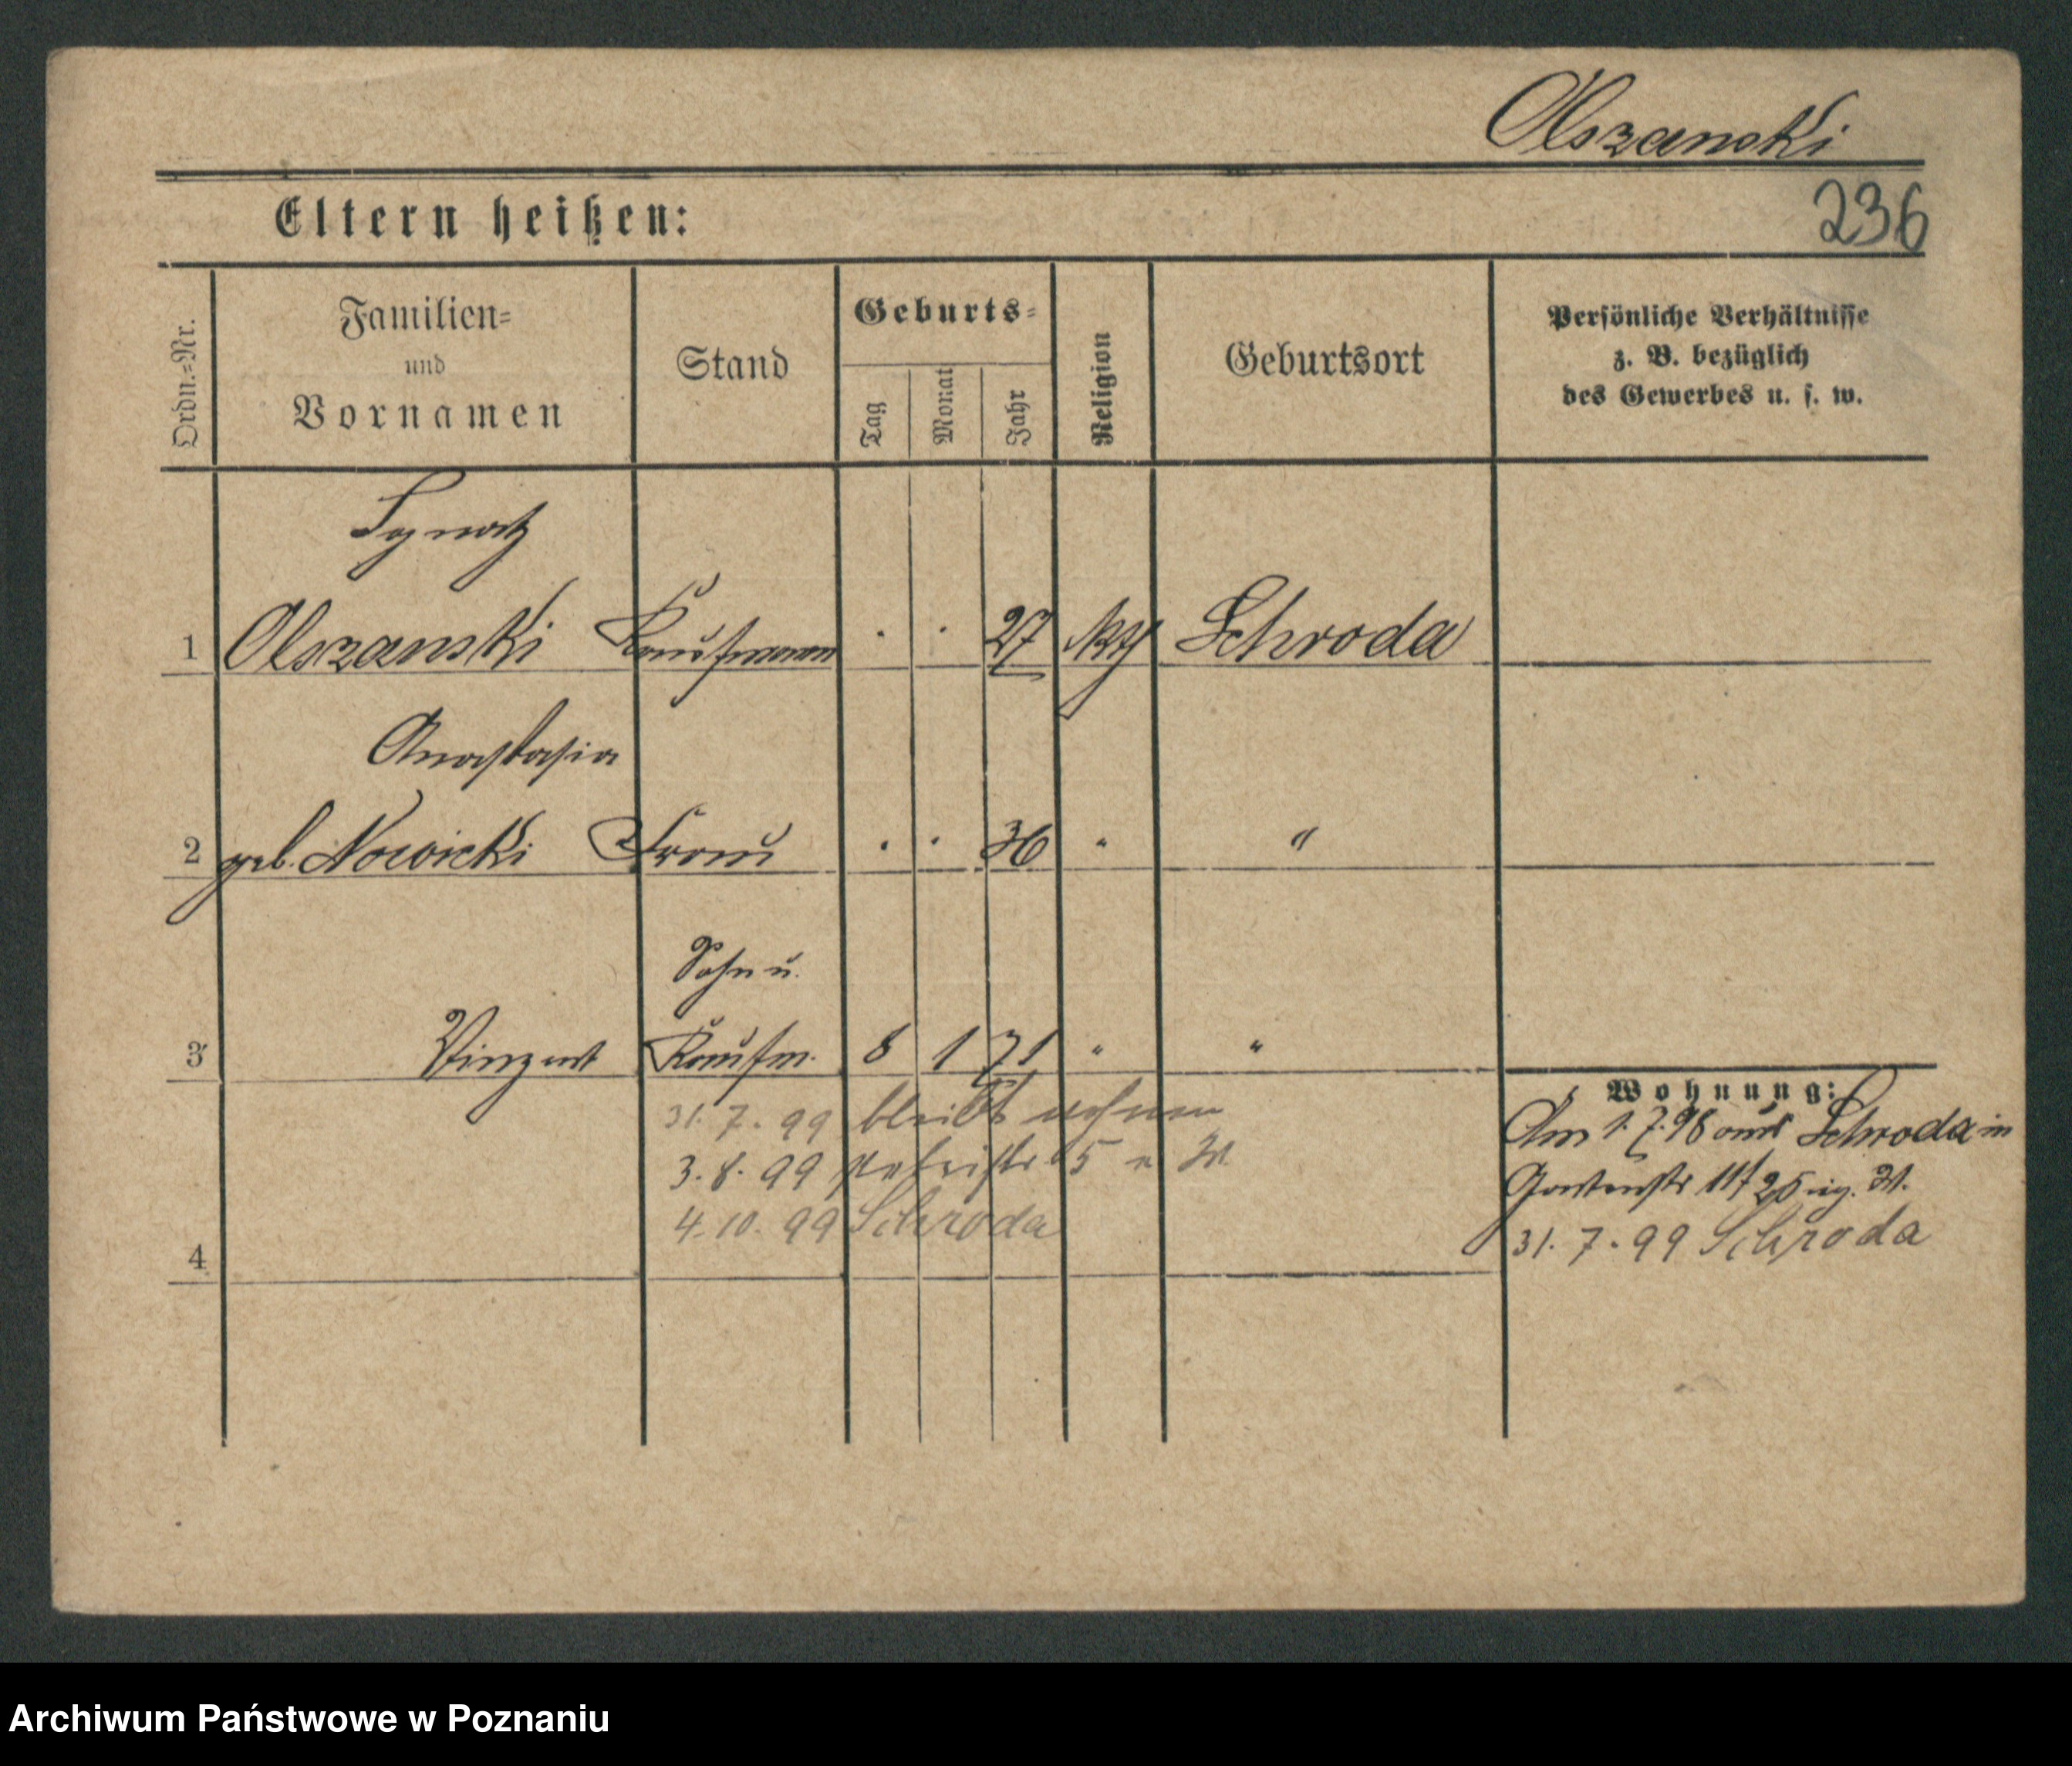 Olszanski
236
Eltern heißen:
Ordn.=Nr.
Familien=
und
Vornamen
Stand
Geburts=
Tag
Monat
Jahr
Religion
Geburtsort
Persönliche Verhältnisse
z. B. bezüglich
des Gewerbes u. s. w.
Ignatz
1 Olszanski Kaufmann . . 27 Schroda
Anastasia
2 geb. Nowicki Frau . . 36 " "
Sohn u.
3 Vinzent Kaufm. 8 1 71 " "
31. 7. 99 bleibt wohnen
3. 8. 99 Petristr. 5 
4. 10. 99 Schroda
4
Wohnung:
Am 1. 7. 96 aus Schroda in
Gartenstr 11
31. 7. 99 Schroda
Archiwum Państwowe w Poznaniu